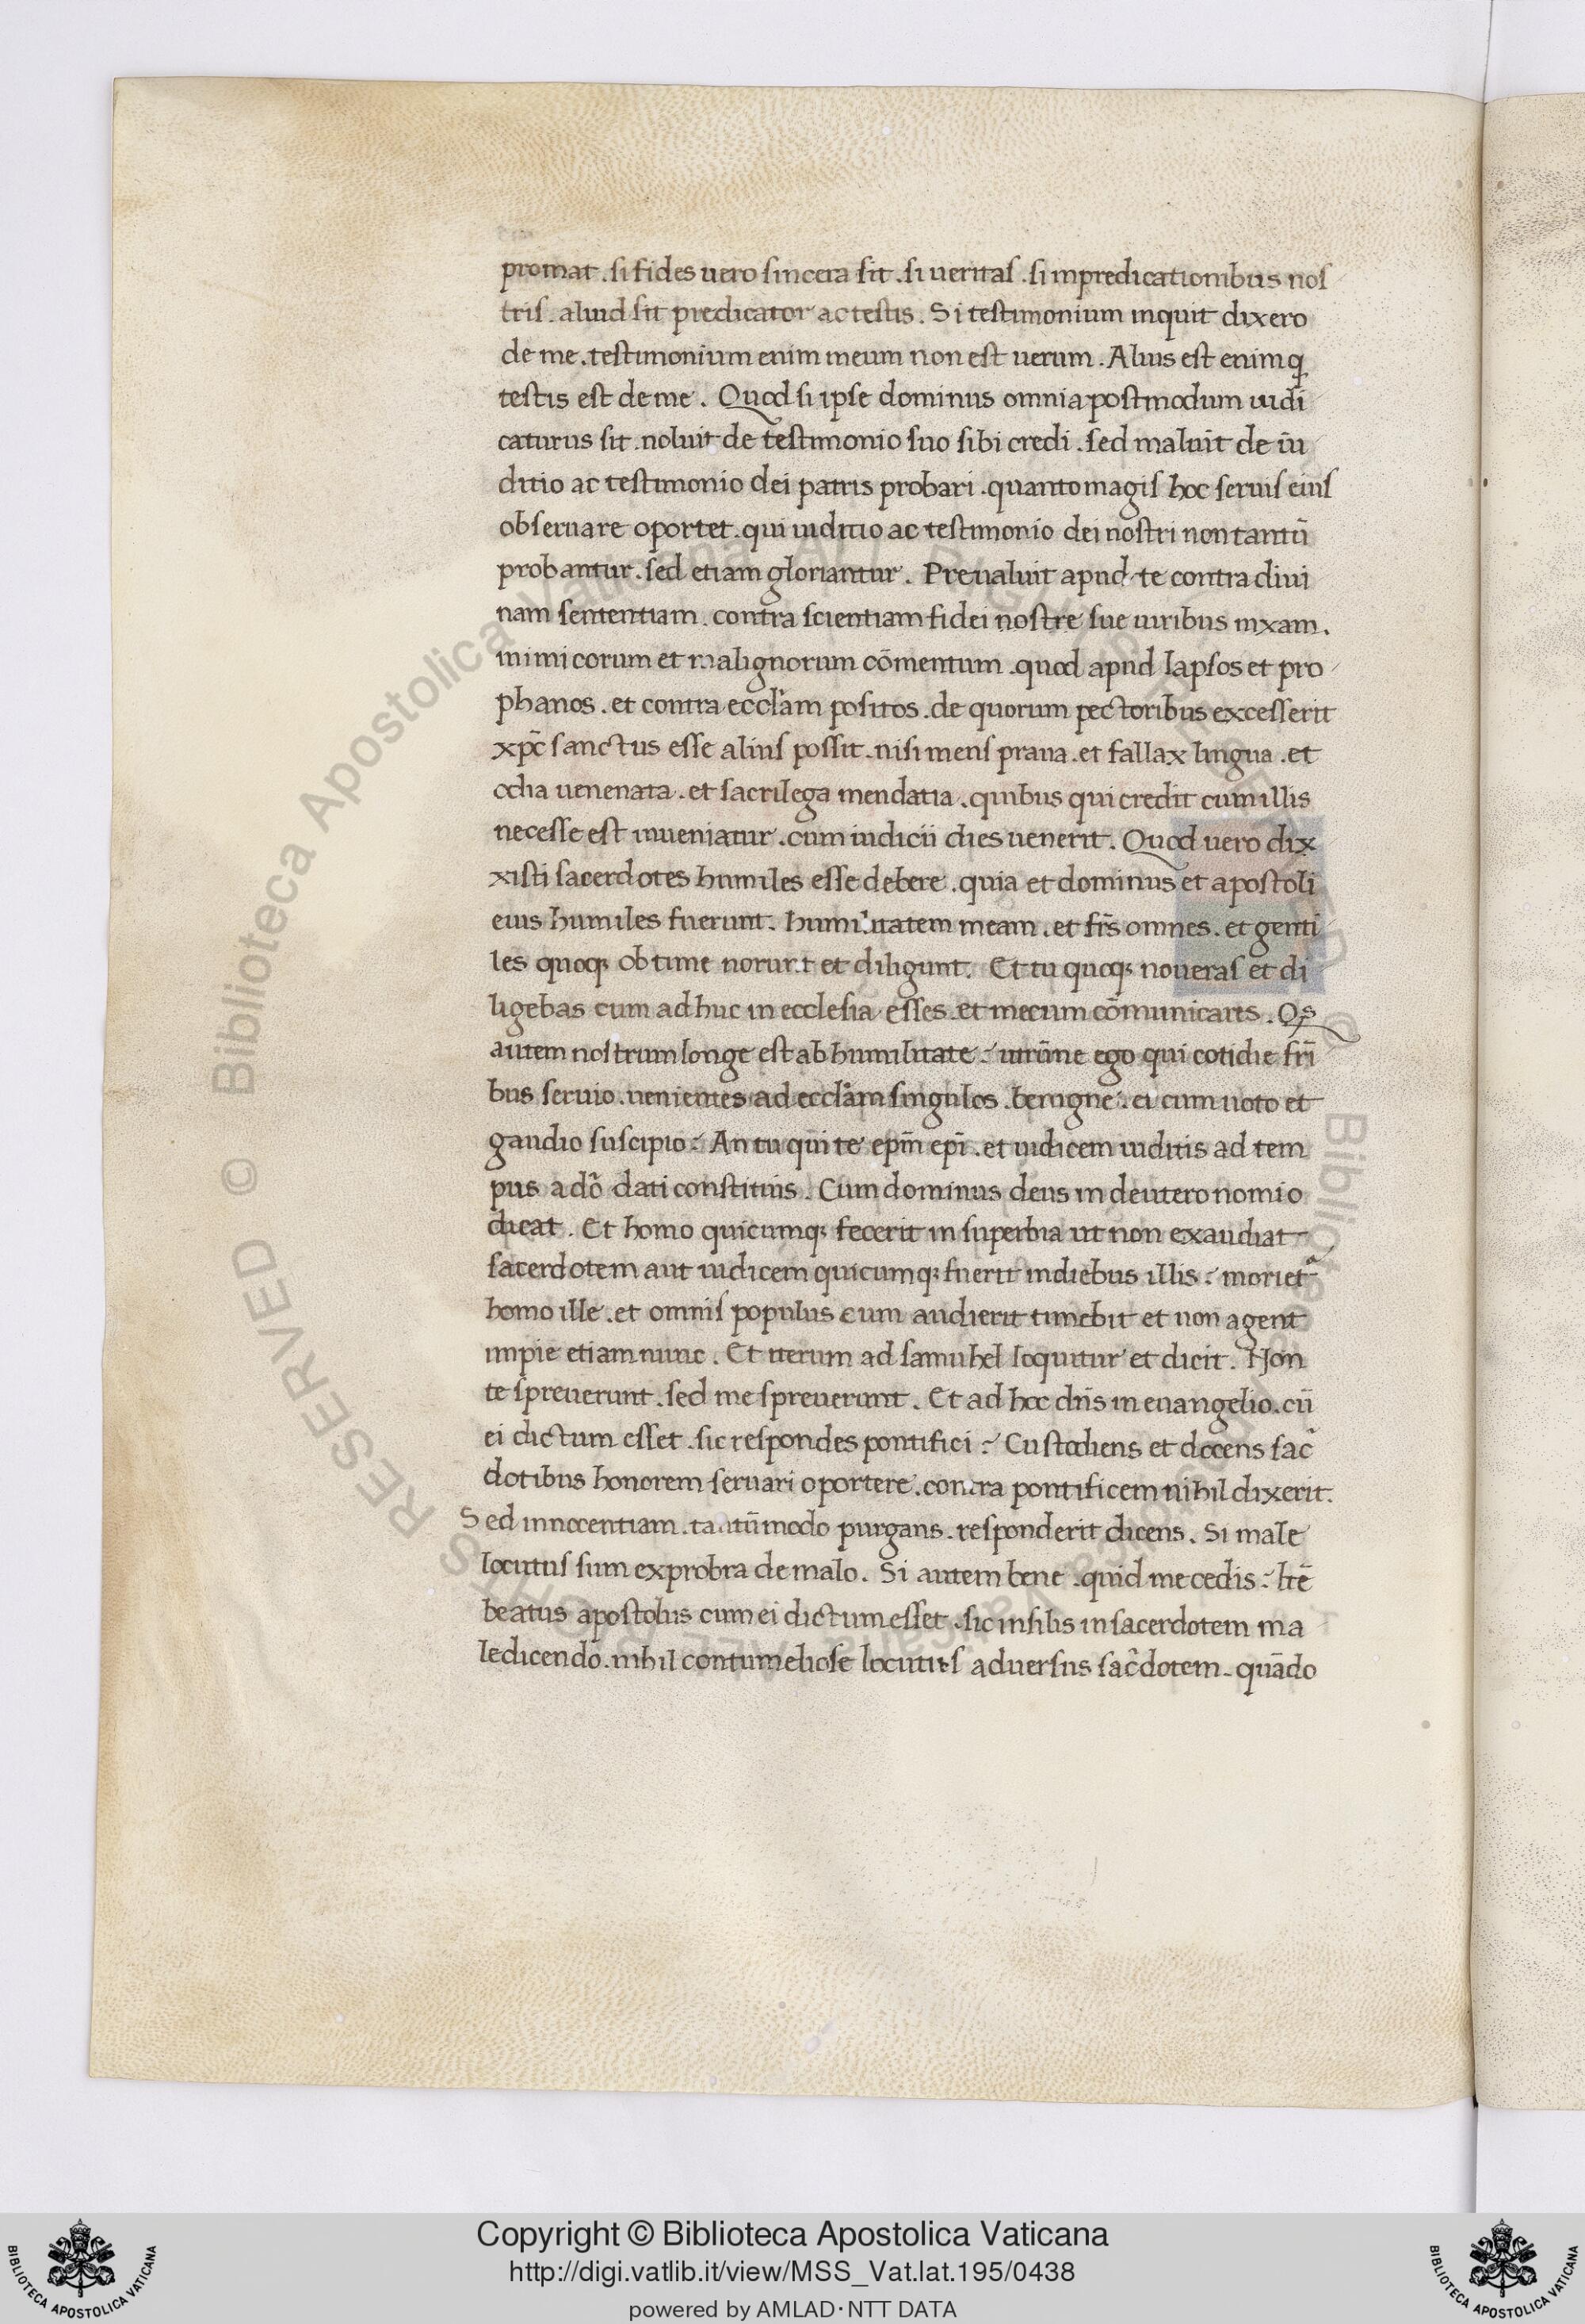 promat . si fides uero sincera sit . si ueritas . si in predicationibus nos
tris . aliud sit predicator ac testis . Si testimonium inquit dixero
de me . testimonium enim meum non est uerum . Alius est enim q
testis est de me . Quod si ipse dominus omnia postmodum iudi
caturus sit . noluit de testimonio suo sibi credi . sed maluit de iu
ditio ac testimonio dei patris probari . quanto magis hoc seruis eius
obseruare oportet . qui iuditio ac testimonio dei nostri non tantū
probantur . sed etiam gloriantur . Preualuit apud te contra diui
nam sententiam . contra scientiam fidei nostre sue uiribus nixam .
inimicorum et malignorum cōmentum . quod apud lapsos et pro
phanos . et contra eccl'am positos . de quorum pectoribus excesserit
xp̄c sanctus esse alius possit . nisi mens praua . et fallax lingua . et
odia uenenata . et sacrilega mendatia . quibus qui credit cum illis
necesse est inueniatur . cum iudicii dies uenerit . Quod uero dix
xisti sacerdotes humiles esse debere . quia et dominus et apostoli
eius humiles fuerunt . humilitatem meam . et fr̄s omnes . et genti
les quoq; obtime norunt et diligunt . Et tu quoq; noueras et di
ligebas cum adhuc in ecclesia esses . et mecum cōmunicares . Qs
autem nostrum longe est ab humilitate : utrūne ego qui cotidie fr̄i
bus seruio . uenientes ad eccl'am singulos . benigne . et cum uoto et
gaudio suscipio : An tu qui te ep̄m ep̄i . et iudicem iuditis ad tem
pus a dō dati constituis . Cum dominus deus in deuteronomio
dicat . Et homo quicumq; fecerit in superbia ut non exaudiat
sacerdotem aut iudicem quicumq; fuerit in diebus illis : moriet᷑
homo ille . et omnis populus cum audierit timebit et non agent
impie etiam nunc . Et iterum ad samuhel loquitur et dicit . Non
te spreuerunt . sed me spreuerunt . Et ad hoc dn̄s in euangelio . cū
ei dictum esset . sic respondes pontifici : Custodiens et docens sac̄
dotibus honorem seruari oportere . contra pontificem nihil dixerit .
Sed innocentiam . tantūmodo purgans . responderit dicens . Si male
locutus sum exprobra de malo . Si autem bene . quid me cedis : Itē
beatus apostolus cum ei dictum esset . sic insilis in sacerdotem ma
ledicendo . nihil contumeliose locutus aduersus sac̄dotem . quādo
© Biblioteca Apostolica Vaticana ALL RIGHTS RESERVED
Copyright © Biblioteca Apostolica Vaticana
http://digi.vatlib.it/view/MSS_Vat.lat.195/0438
powered by AMLAD·NTT DATA
BIBLIOTECA APOSTOLICA VATICANA
BIBLIOTECA APOSTOLICA VATICANA